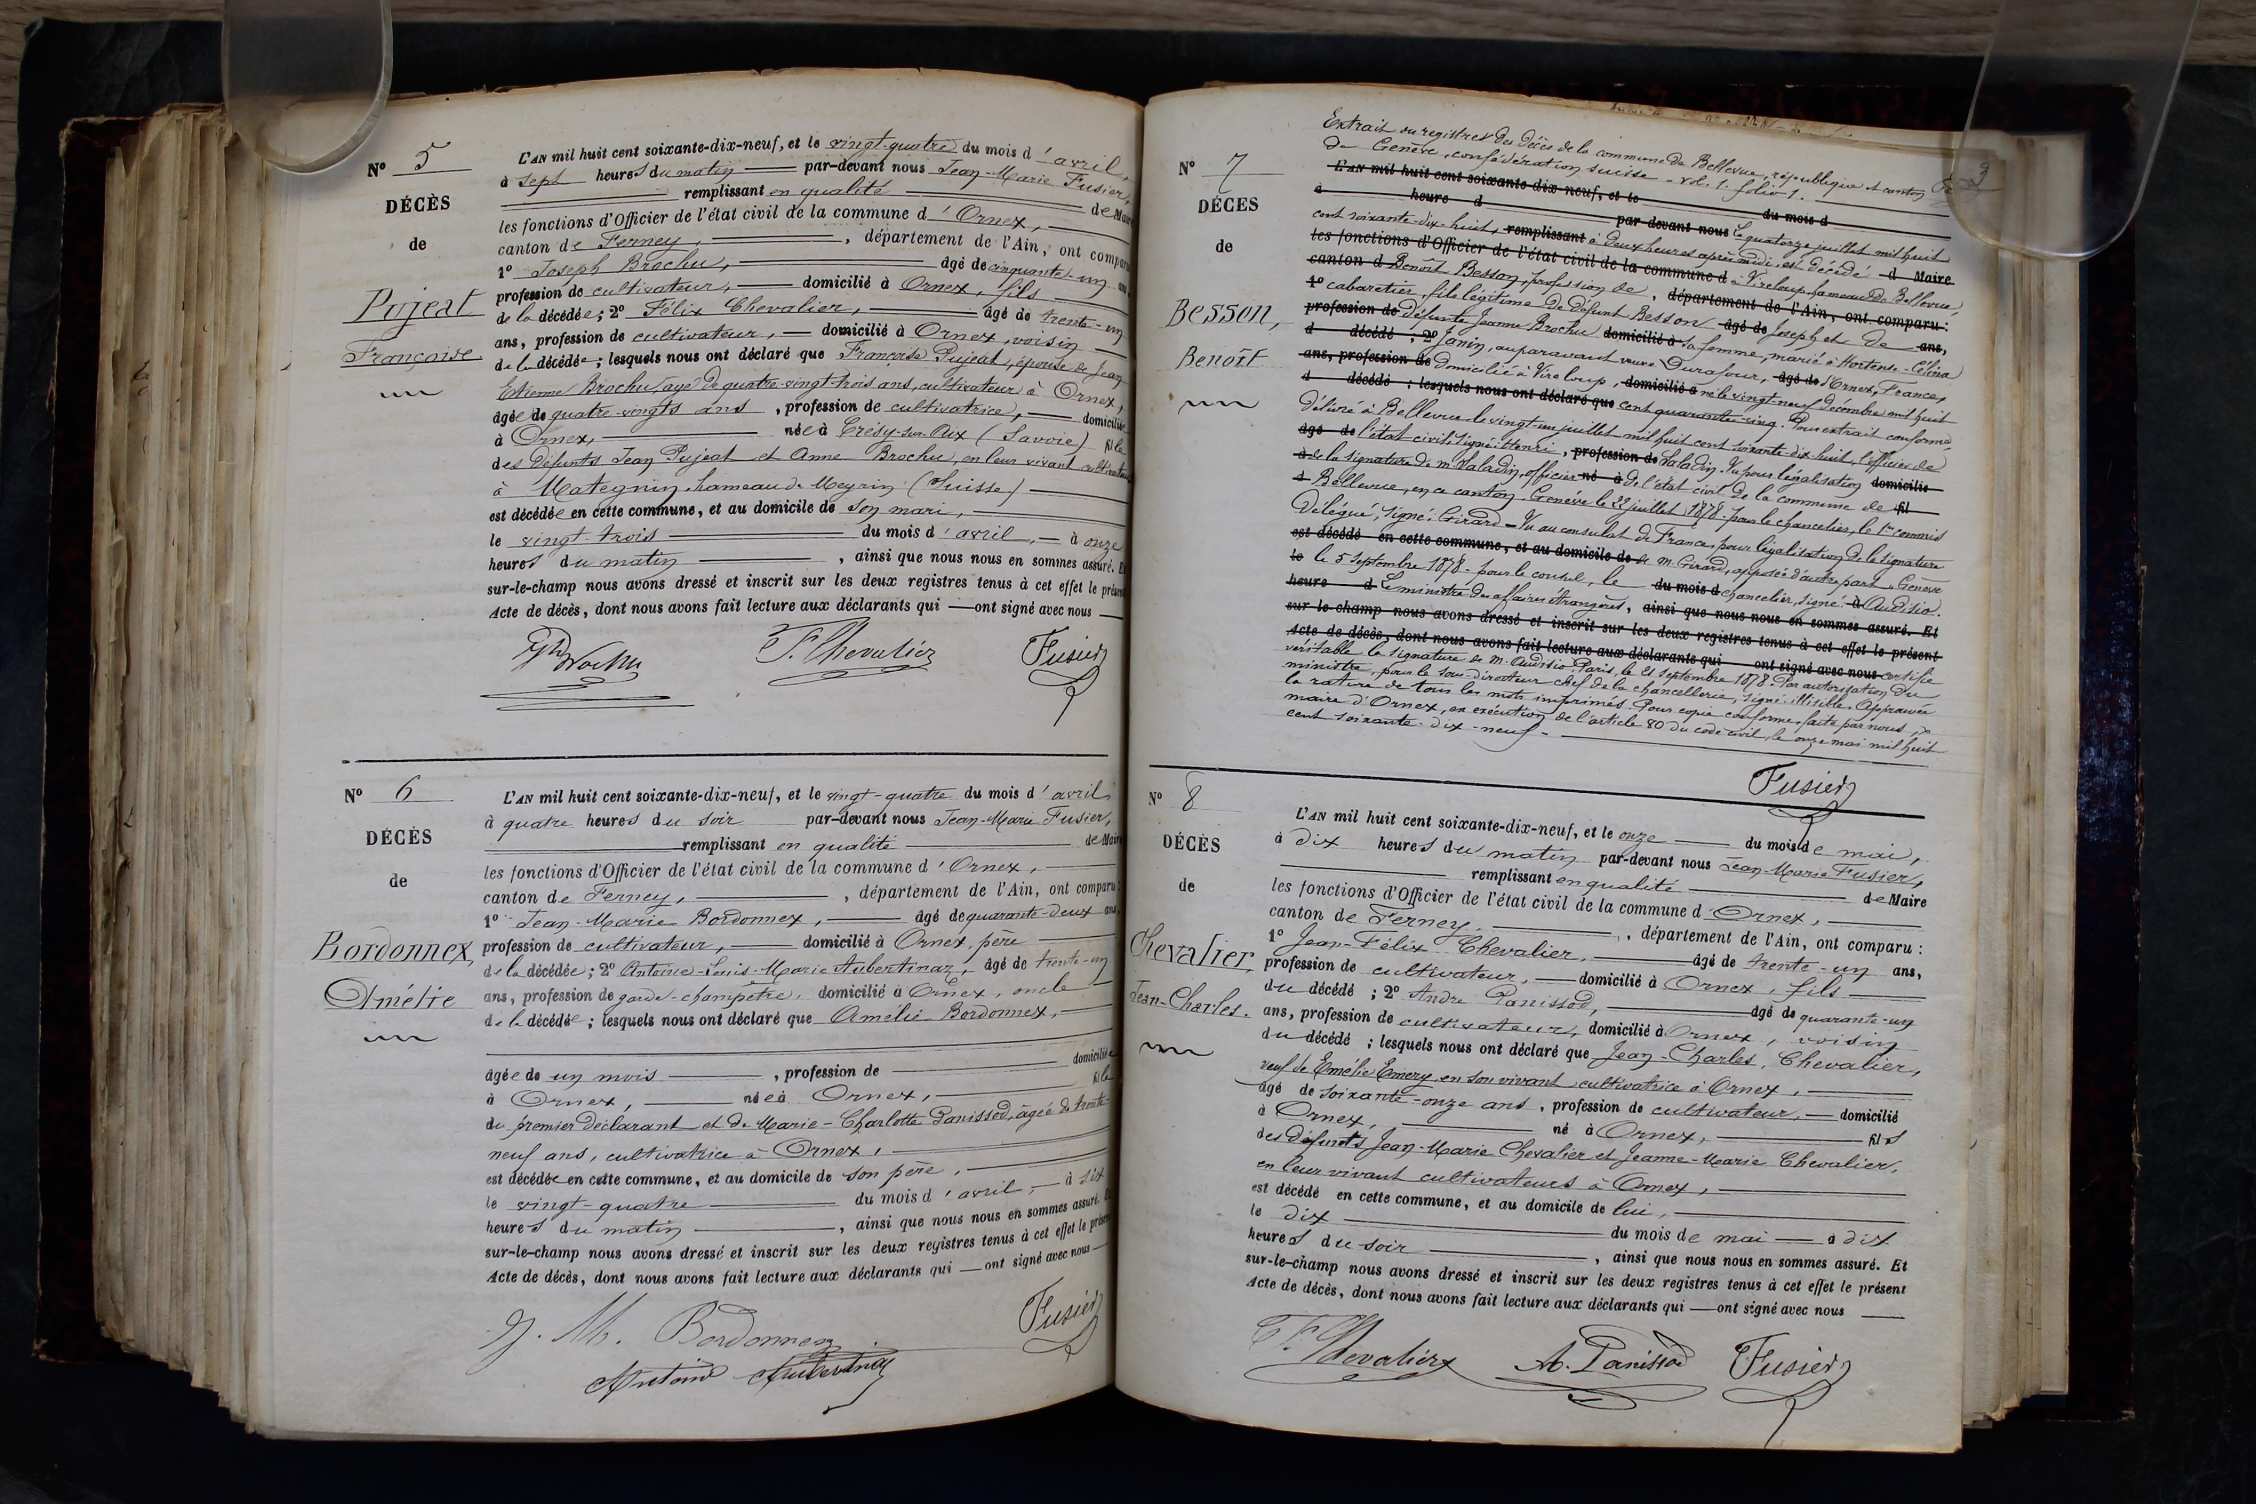 N° 5
DÉCÈS
de
Pujeat
Françoise
L'AN mil huit cent soixante-dix-neuf, et le vingt-quatre du mois d'avril,
à sept heures du matin par-devant nous Jean-Marie Fusier,
remplissant en qualité de Maire
les fonctions d'Officier de l'état civil de la commune d'Ornex,
canton de Ferney, , département de l'Ain, ont comparu
1° Joseph Brochu, âgé de cinquante-un ans
profession de cultivateur, domicilié à Ornex, fils
de la décédée ; 2° Félix Chevalier, âgé de trente-un
ans, profession de cultivateur, domicilié à Ornex, voisin
de la décédée ; lesquels nous ont déclaré que Françoise Pujeat, épouse de Jean
Etienne Brochu, agé de quatre-vingt-trois ans, cultivateur à Ornex,
âgée de quatre-vingts ans , profession de cultivatrice, domiciliée
à Ornex, née à Crésy-sur-Aix (Savoie) fille
des défunts Jean Pujeat et Anne Brochu, en leur vivant cultivateurs
à Mategnin, hameau de Meyrin (Suisse)
est décédée en cette commune, et au domicile de son mari,
le vingt-trois du mois d'avril, à onze
heures du matin , ainsi que nous nous en sommes assuré. Et
sur-le-champ nous avons dressé et inscrit sur les deux registres tenus à cet effet le présent
Acte de décès, dont nous avons fait lecture aux déclarants qui ont signé avec nous
F. Chevalier Fusier
N° 6
DÉCÈS
de
Bordonnex,
Amélie
L'AN mil huit cent soixante-dix-neuf, et le vingt-quatre du mois d'avril
à quatre heures du soir par-devant nous Jean-Marie Fusier,
remplissant en qualité de Maire
les fonctions d'Officier de l'état civil de la commune d'Ornex,
canton de Ferney, , département de l'Ain, ont comparu :
1° Jean-Marie Bordonnex, âgé de quarante-deux ans,
profession de cultivateur, domicilié à Ornex, père
de la décédée ; 2° Antoine-Louis-Marie Aubertinaz, âgé de trente-un
ans, profession de garde-champêtre, domicilié à Ornex, oncle
de la décédée ; lesquels nous ont déclaré que Amélie Bordonnex,
domiciliée
âgée de un mois , profession de
à Ornex, née à Ornex, fille
du premier déclarant et de Marie-Charlotte Panissod, âgée de trente-
neuf ans, cultivatrice à Ornex,
est décédée en cette commune, et au domicile de son père,
le vingt-quatre du mois d'avril, à six
heures du matin , ainsi que nous nous en sommes assuré. Et
sur-le-champ nous avons dressé et inscrit sur les deux registres tenus à cet effet le présent
Acte de décès, dont nous avons fait lecture aux déclarants qui ont signé avec nous
J. M. Bordonnex Fusier
Antoine Aubertinaz
3
N° 7
DÉCÈS
de
Besson,
Benoît
Extrait du registre des décès de la commune de Bellevue, république et canton
de Genève, confédération suisse - vol. 1. folio 1.
L'AN mil huit cent soixante-dix-neuf, et le du mois d
à heure d par-devant nous Le quatorze juillet mil huit
cent soixante-dix-huit, remplissant à deux heures après midi, est décédé d Maire
les fonctions d'Officier de l'état civil de la commune d à Vireloup, hameau de Bellevue,
canton d Benoît Besson, profession de , département de l'Ain, ont comparu :
1° cabaretier, fils légitime de défunt Besson âgé de Joseph et de ans,
profession de défunte Jeanne Brochu domicilié à sa femme, marié à Hortense-Célina
d décédé ; 2° Janin, auparavant veuve Durafour, âgé de d'Ornex, France,
ans, profession de domicilié à Vireloup, domicilié à né le vingt-neuf décembre mil huit
d décédé ; lesquels nous ont déclaré que cent quarante-cinq. Pour extrait conforme,
délivré à Bellevue le vingt-un juillet mil huit cent soixante-dix-huit, l'officier de
âgé de l'état civil, signé : Henri , profession de Saladin. Vu pour légalisation domicilié
à de la signature de m. Saladin, officier né à de l'état civil de la commune de fil
d Bellevue, en ce canton. Genève le 22 juillet 1878. Pour le chancelier, le 1er commis
délégué, signé : Girard - Vu au consulat de France, pour légalisation de la signature
est décédé en cette commune, et au domicile de de m. Girard, apposée d'autre part. Genève
le le 5 septembre 1878. pour le consul, le du mois d chancelier, signé : à Audisio.
heure d Le ministre des affaires étrangères , ainsi que nous nous en sommes assuré. Et
sur-le-champ nous avons dressé et inscrit sur les deux registres tenus à cet effet le présent
Acte de décès, dont nous avons fait lecture aux déclarants qui ont signé avec nous certifie
véritable la signature de M. Audisio. Paris, le 21 septembre 1878. Par autorisation du
ministre, pour le sous-directeur chef de la chancellerie, signé : illisible. Approuvé
la rature de tous les mots imprimés. Pour copie conforme, faite par nous,
maire d'Ornex, en exécution de l'article 80 du code civil, le onze mai mil huit
cent soixante-dix-neuf.
Fusier
N° 8
DÉCÈS
de
Chevalier,
Jean-Charles.
L'AN mil huit cent soixante-dix-neuf, et le onze du mois de mai,
à dix heures du matin par-devant nous Jean-Marie Fusier,
remplissant en qualité de Maire
les fonctions d'Officier de l'état civil de la commune d'Ornex,
canton de Ferney, , département de l'Ain, ont comparu :
1° Jean-Félix Chevalier, âgé de trente-un ans,
profession de cultivateur, domicilié à Ornex, fils
du décédé ; 2° André Panissod, âgé de quarante-un
ans, profession de cultivateur, domicilié à Ornex, voisin
du décédé ; lesquels nous ont déclaré que Jean-Charles Chevalier,
veuf de Emélie Emery, en son vivant cultivatrice à Ornex,
âgé de soixante-onze ans , profession de cultivateur, domicilié
à Ornex, né à Ornex, fils
des défunts Jean-Marie Chevalier et Jeanne-Marie Chevalier,
en leur vivant cultivateurs à Ornex,
est décédé en cette commune, et au domicile de lui,
le dix du mois de mai à dix
heures du soir , ainsi que nous nous en sommes assuré. Et
sur-le-champ nous avons dressé et inscrit sur les deux registres tenus à cet effet le présent
Acte de décès, dont nous avons fait lecture aux déclarants qui ont signé avec nous
F. Chevalier A. Panissod Fusier